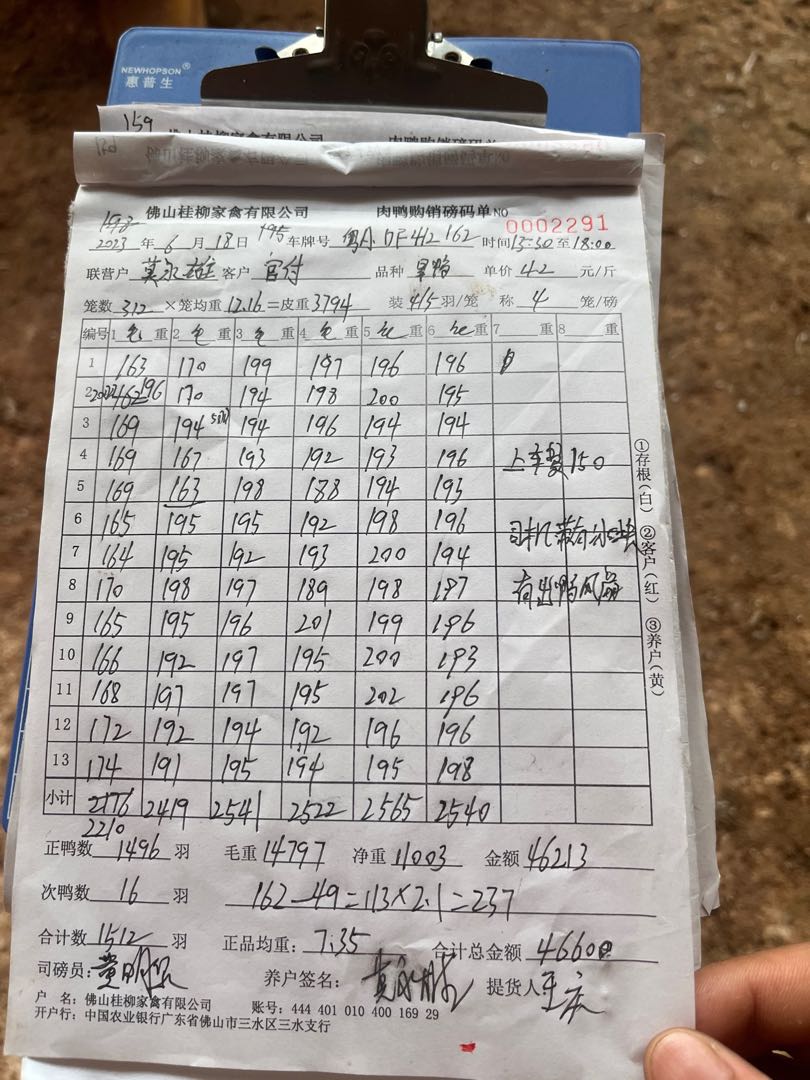 NEWHOPSON®
惠普生
159
佛山桂柳家禽有限公司 肉鸭购销磅码单NO 0002291
2023 年 6 月 18 日 195 车牌号 粤A 162 时间 13:30 至 18:00
联营户 莫永雄 客户 官付 品种 旱鸭 单价 4.2 元/斤
笼数 312 ×笼均重 12.16 =皮重 3794 装 4/5 羽/笼 称 4 笼/磅
编号 1 毛 重 2 毛 重 3 毛 重 4 毛 重 5 毛 重 6 毛 重 7 重 8 重
1 163 170 199 197 196 196
2 196 170 194 198 200 195
3 169 194 194 196 194 194
4 169 167 193 192 193 196 上车费 150
5 169 163 198 188 194 193
6 165 195 195 192 198 196 司机
7 164 195 192 193 200 194
8 170 198 197 189 198 197 有出鸭风扇
9 165 195 196 201 199 196
10 166 192 197 195 200 193
11 168 197 197 195 202 196
12 172 192 194 192 196 196
13 174 191 195 194 195 198
小计 2176 2419 2541 2522 2565 2540
2210
正鸭数 1496 羽 毛重 14797 净重 11003 金额 46213
次鸭数 16 羽 162-49=113×2.1=237
合计数 1512 羽 正品均重: 7.35 合计总金额 46600
司磅员: 养户签名: 提货人
户 名: 佛山桂柳家禽有限公司 账号: 444 401 010 400 169 29
开户行: 中国农业银行广东省佛山市三水区三水支行
①存根(白) ②客户(红) ③养户(黄)